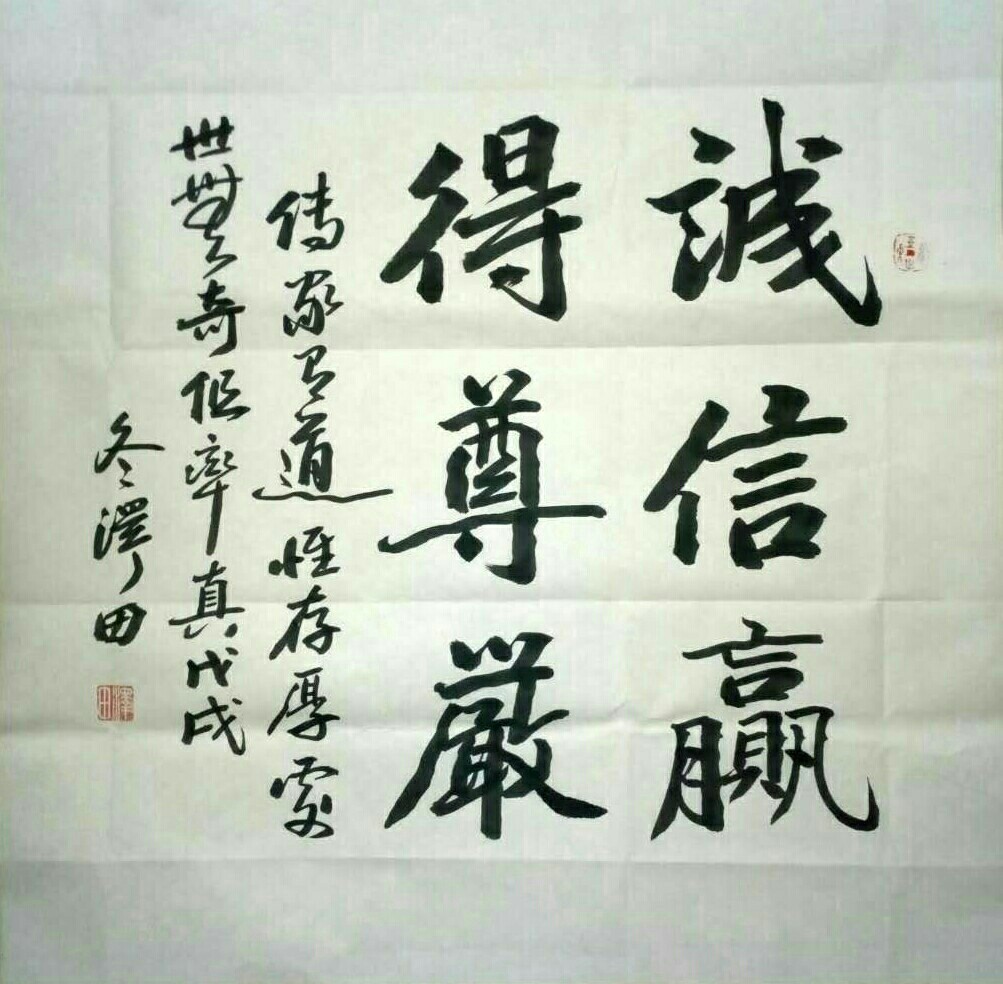 誠信贏
得尊嚴
傳家有道惟存厚處
世無奇但率真戊戌
冬澤田
澤田